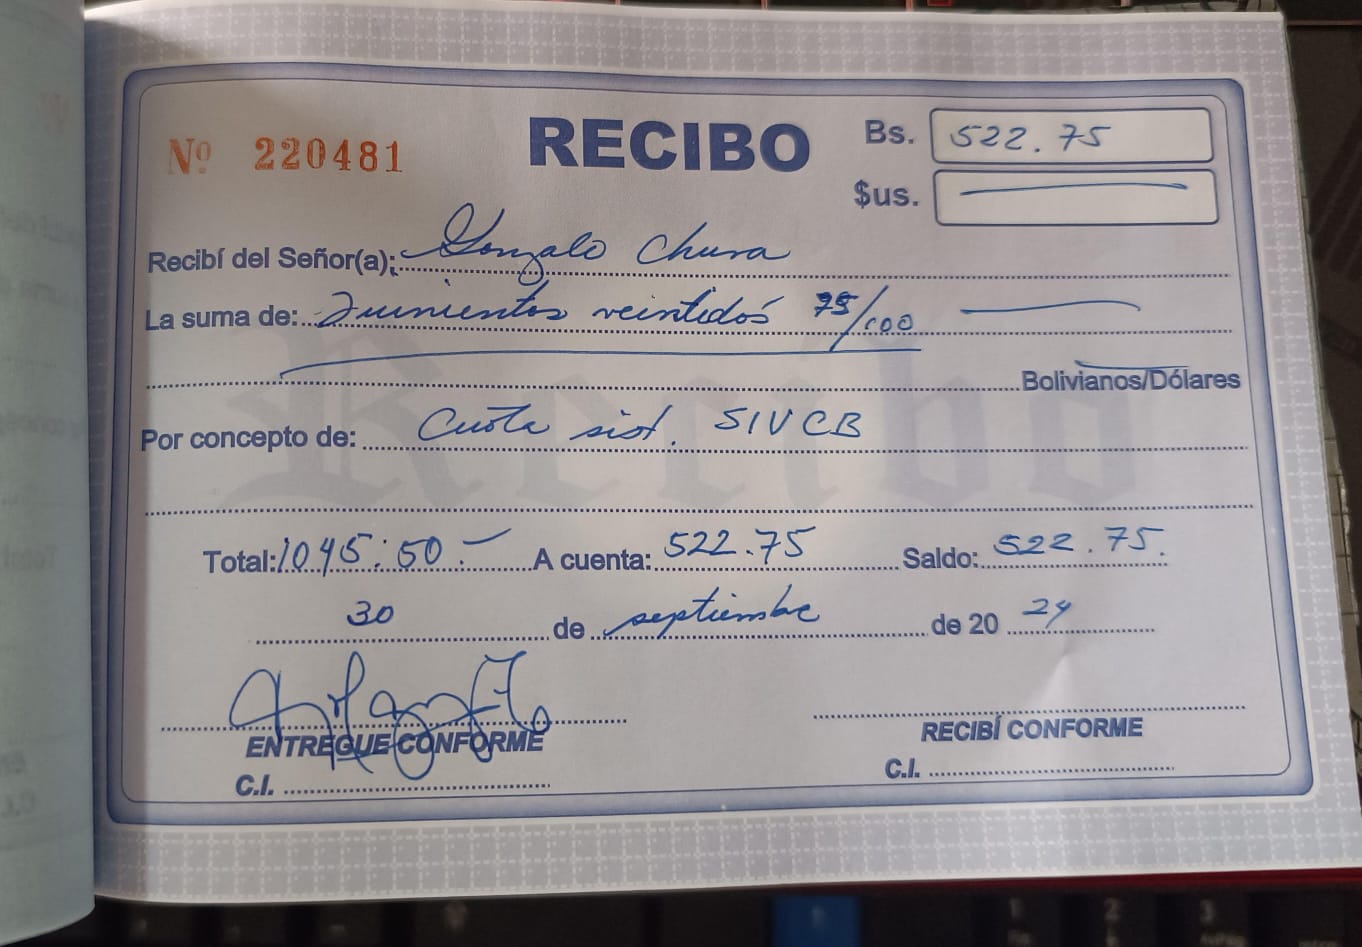 Nº 220481
RECIBO
Bs. 522.75
$us.
Recibí del Señor(a): Gonzalo Chura
La suma de: Quinientos veintidós 75/100
Bolivianos/Dólares
Por concepto de: Cuota sist. SIVCB
Recibo
Total: 1045:50.- A cuenta: 522.75 Saldo: 522.75.
30 de septiembre de 20 24
ENTREGUE CONFORME
RECIBÍ CONFORME
C.I.
C.I.